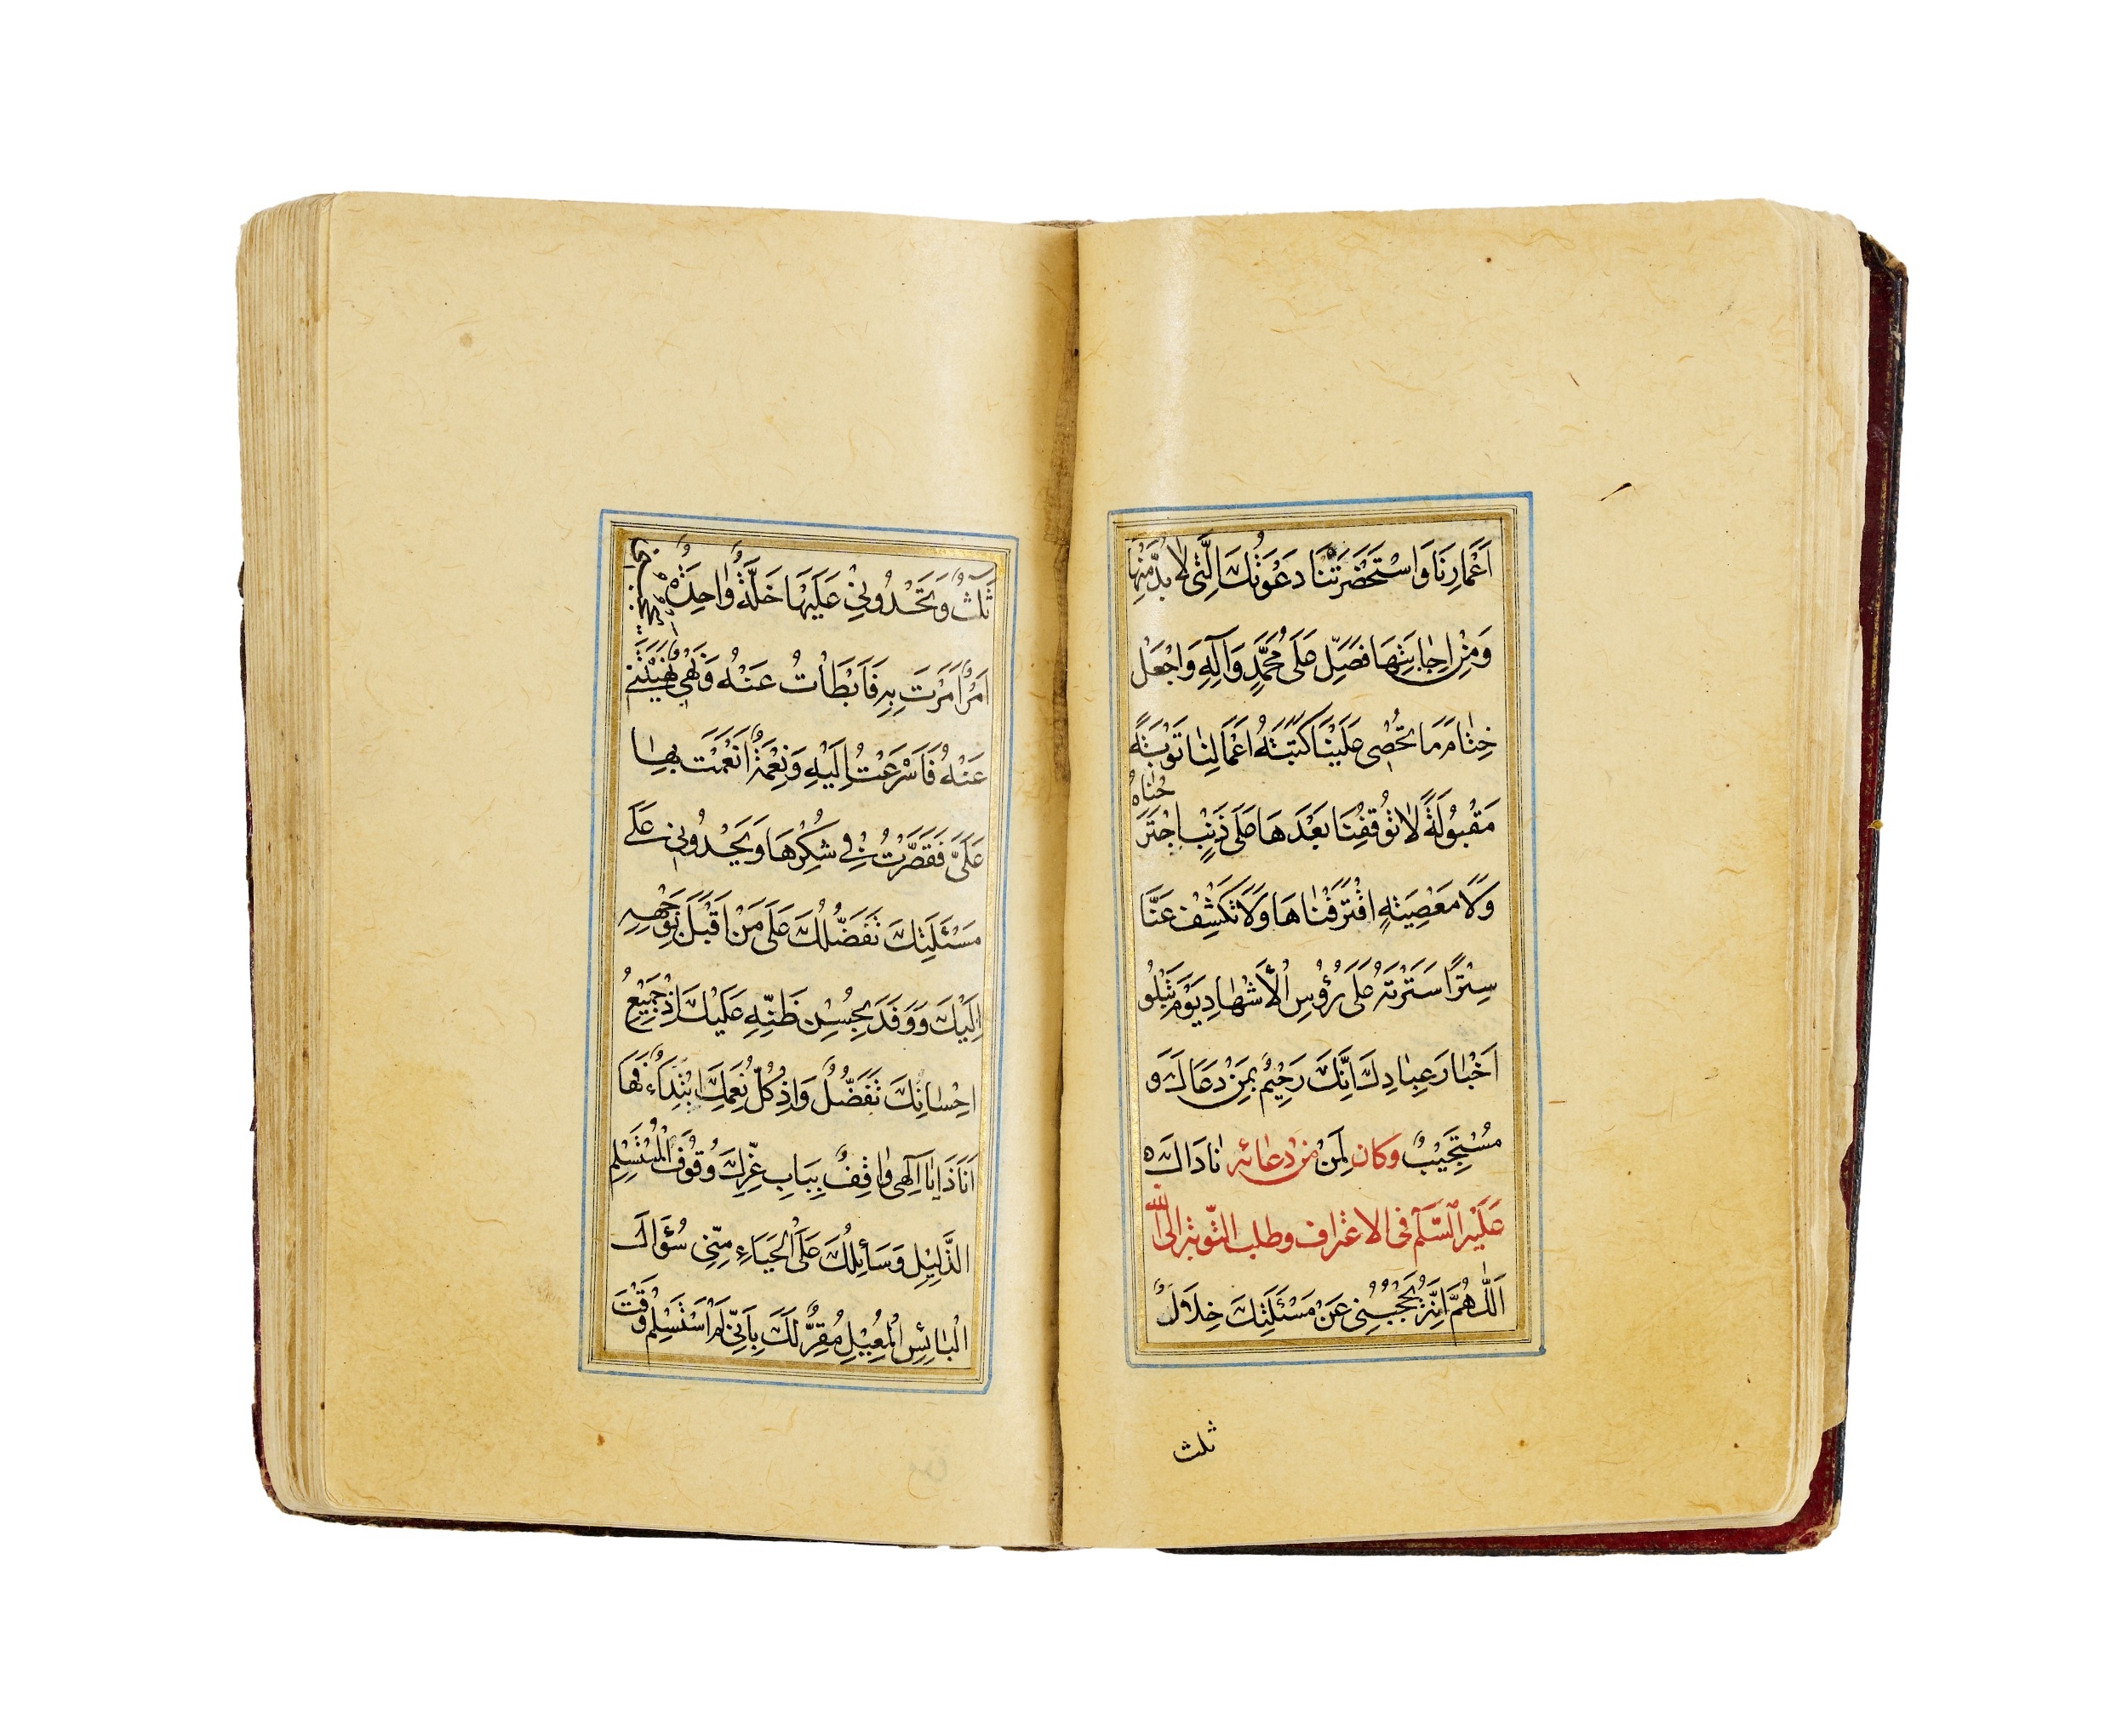 اَعْمارِنَا وَاسْتَحْضَرَتْنَا دَعْوَتُكَ الَّتِى لا بُدَّ مِنْها
وَمِنْ اِجابَتِهَا فَصَلِّ عَلَى مُحَمَّدٍ وَآلِهِ وَاجْعَلْ
خِتامَ مَا تُحْصِى عَلَيْنَا كَتَبَةُ اَعْمَالِنٰا تَوْبَةً
مَقْبُولَةً لاٰ تُوقِفُنَا بَعْدَهَا عَلَى ذَنْبٍ اِجْتَرَحْنٰاهُ
وَلَا مَعْصِيَةٍ اقْتَرَفْنٰاهَا وَلَا تَكْشِفْ عَنَّا
سِتْرًا سَتَرْتَهُ عَلَى رُؤُسِ الْأَشْهٰادِ يَوْمَ تَبْلُو
اَخْبٰارَ عِبٰادِكَ اِنَّكَ رَحِيْمٌ بِمَنْ دَعَاكَ وَ
مُسْتَجِيْبٌ لِمَنْ نٰادَاكَ ه وكان من دعائه
عَلَيْهِ السَّلَام فى الاعتراف وطلب التّوبة الى الله
اَللّٰهُمَّ اِنَّهُ يَحْجُبُنِى عَنْ مَسْئَلَتِكَ خِلَالٌ
ثلث
ثَلٰثٌ وَتَحْدُونِىْ عَلَيْهَا خَلَّةٌ وٰاحِدَةٌ
اَمْرٌ اَمَرْتَ بِهِ فَاَبْطَأْتُ عَنْهُ وَنَهْىٌ نَهَيْتَنِى
عَنْهُ فَاَسْرَعْتُ اِلَيْهِ وَنِعْمَةٌ اَنْعَمْتَ بِهٰا
عَلَىَّ فَقَصَّرْتُ فِى شُكْرِهَا وَيَحْدُونِى عَلَى
مَسْئَلَتِكَ تَفَضُّلُكَ عَلَى مَنْ اَقْبَلَ بِوَجْهِهِ
اِلَيْكَ وَوَفَدَ بِحُسْنِ ظَنِّهِ عَلَيْكَ اِذْ جَمِيْعُ
اِحْسٰانِكَ تَفَضُّلٌ وَاِذْ كُلُّ نِعَمِكَ ابْتِدَاءٌ فَهَا
اَنَا ذَا يٰا اِلٰهِى وٰاقِفٌ بِبَابِ عِزِّكَ وُقُوفَ الْمُسْتَسْلِمِ
الذَّلِيْلِ وَسَائِلُكَ عَلَى الْحَيَاءِ مِنِّى سُؤَالَ
الْبٰائِسِ الْمُعِيْلِ مُقِرٌّ لَكَ بِاَنِّى لَمْ اَسْتَسْلِمْ وَقْتَ